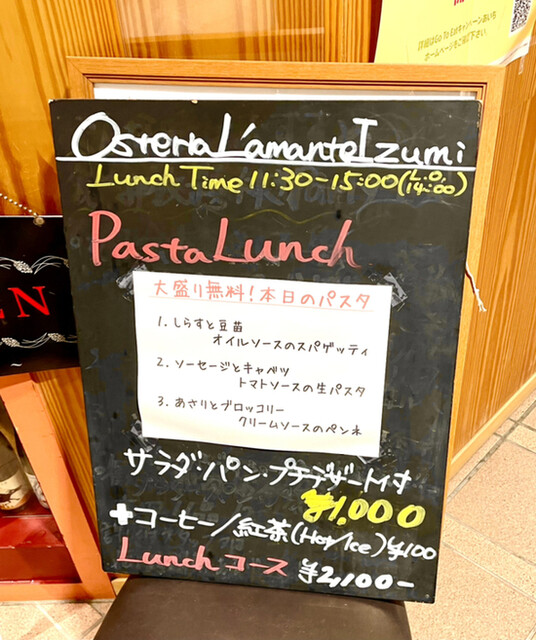 詳細はGo To Eatキャンペーンあいち
ホームページをご覧下さい
Osteria L'amante Izumi
Lunch Time 11:30-15:00(L.O 14:00)
EN
Pasta Lunch
大盛り無料!本日のパスタ
1. しらすと豆苗
オイルソースのスパゲッティ
2. ソーセージとキャベツ
トマトソースの生パスタ
3. あさりとブロッコリー
クリームソースのペンネ
サラダ・パン・プチデザート付
¥1,000
+コーヒー/紅茶(Hot/Ice)¥100
Lunchコース ¥2,100-